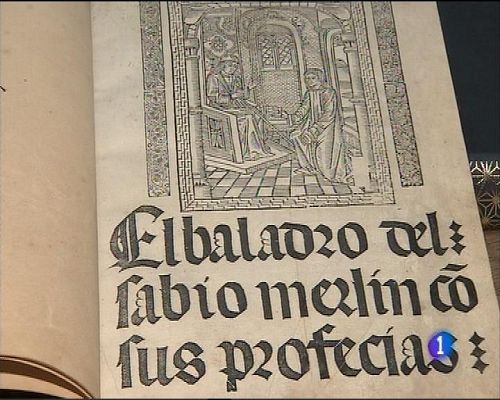 El baladro del
sabio merlin cõ
sus profecias
1